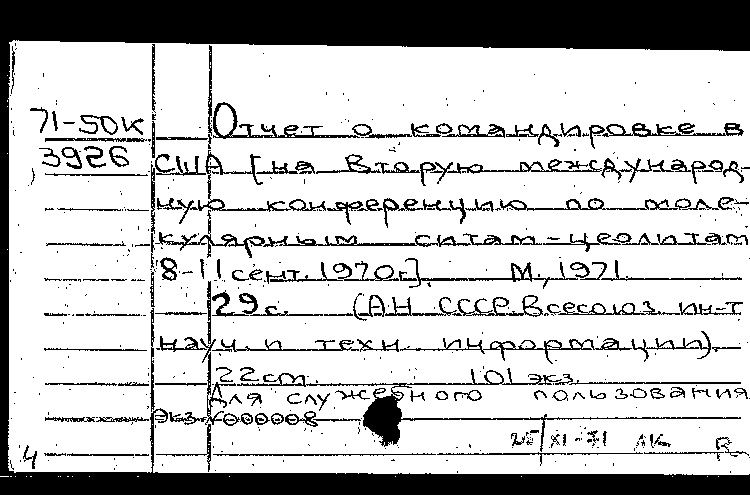 71-50К Отчет о командировке в
3926 США [на Вторую международ-
ную конференцию по моле-
кулярным ситам-цеолитам
8-11 сент. 1970г.]. М., 1971.
29с. (АН СССР. Всесоюз. ин-т
науч. и техн. информации).
22см. 101 экз.
Для служебного пользования
Экз. №000008
25/XI-71 АК
4